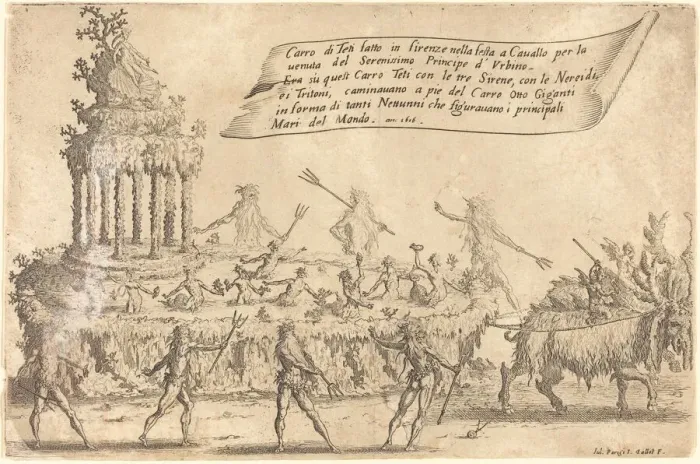 Carro di Teti fatto in firenze nella festa a Cauallo per la
uenuta del Serenissimo Principe d' Vrbino.
Era su questo Carro Teti con le tre Sirene, con le Nereidi,
e i Tritoni, caminauano a pie del Carro Otto Giganti
in forma di tanti Nettunni che figurauano i principali
Mari del Mondo. an: 1616.
Iul. Parigi I. Callot F.